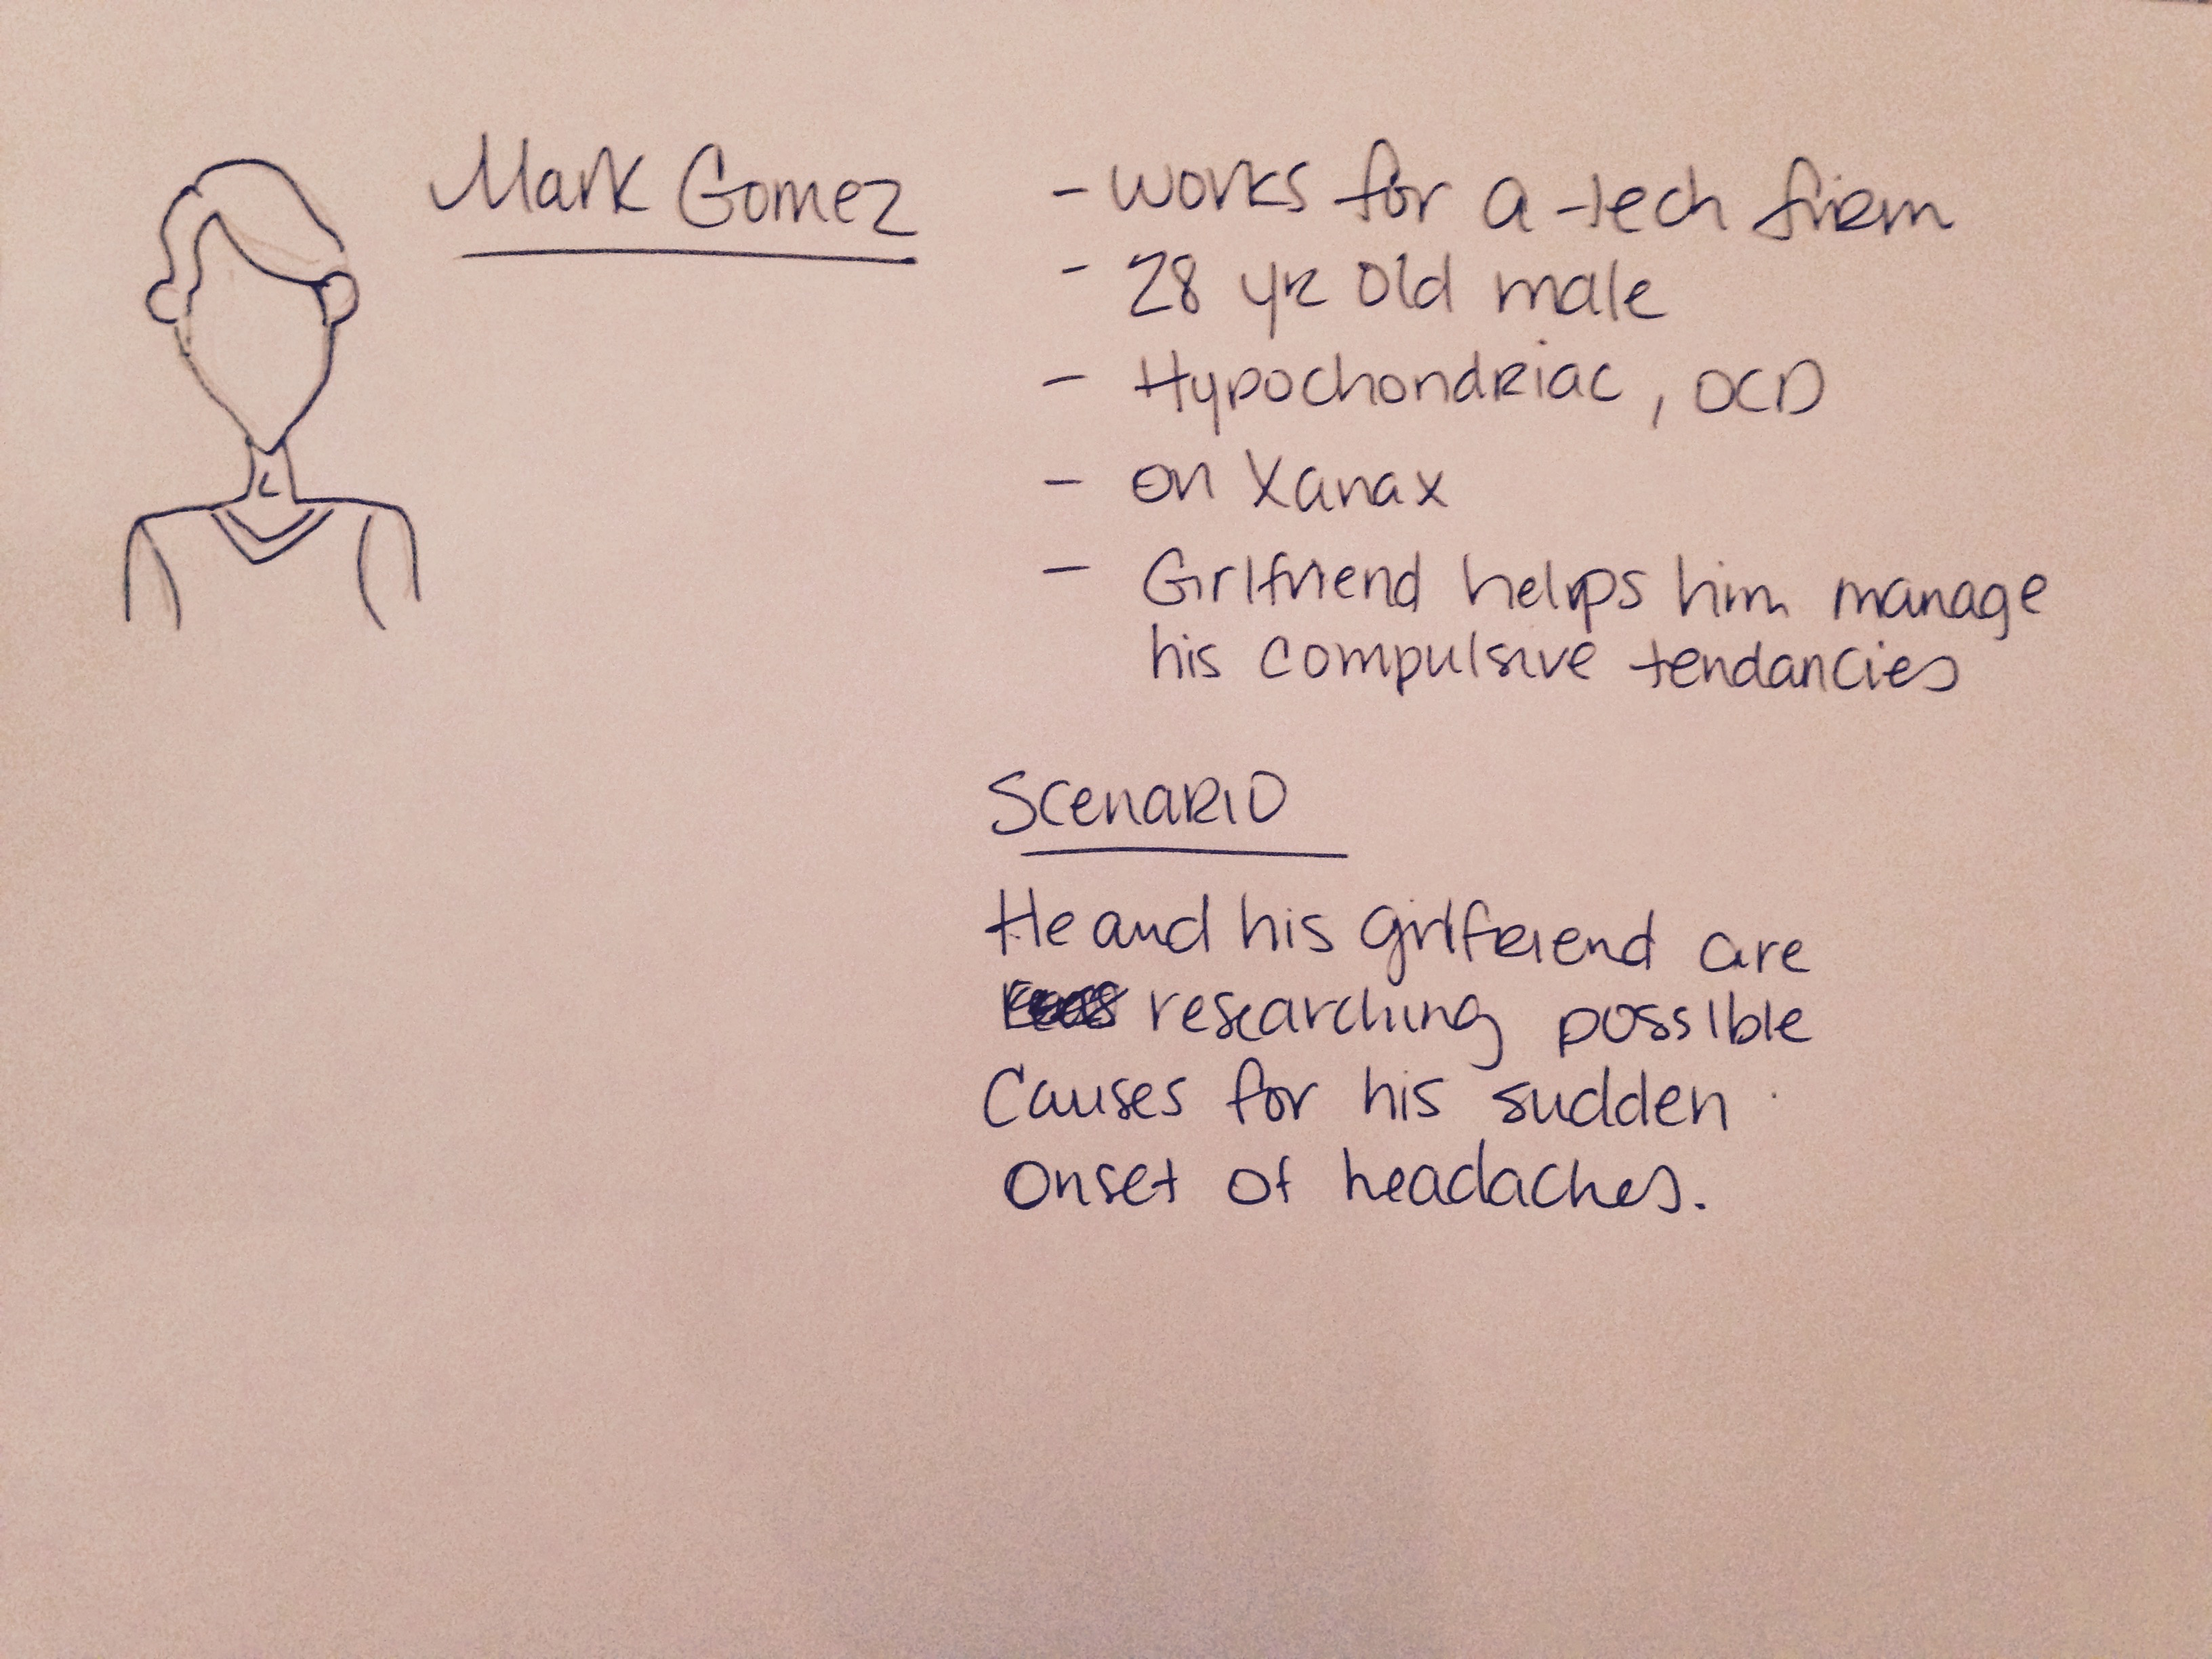 Mark Gomez
- works for a tech firm
- 28 yr old male
- Hypochondriac, OCD
- on Xanax
- Girlfriend helps him manage
his compulsive tendancies
Scenario
He and his girlfriend are
researching possible
Causes for his sudden
onset of headaches.